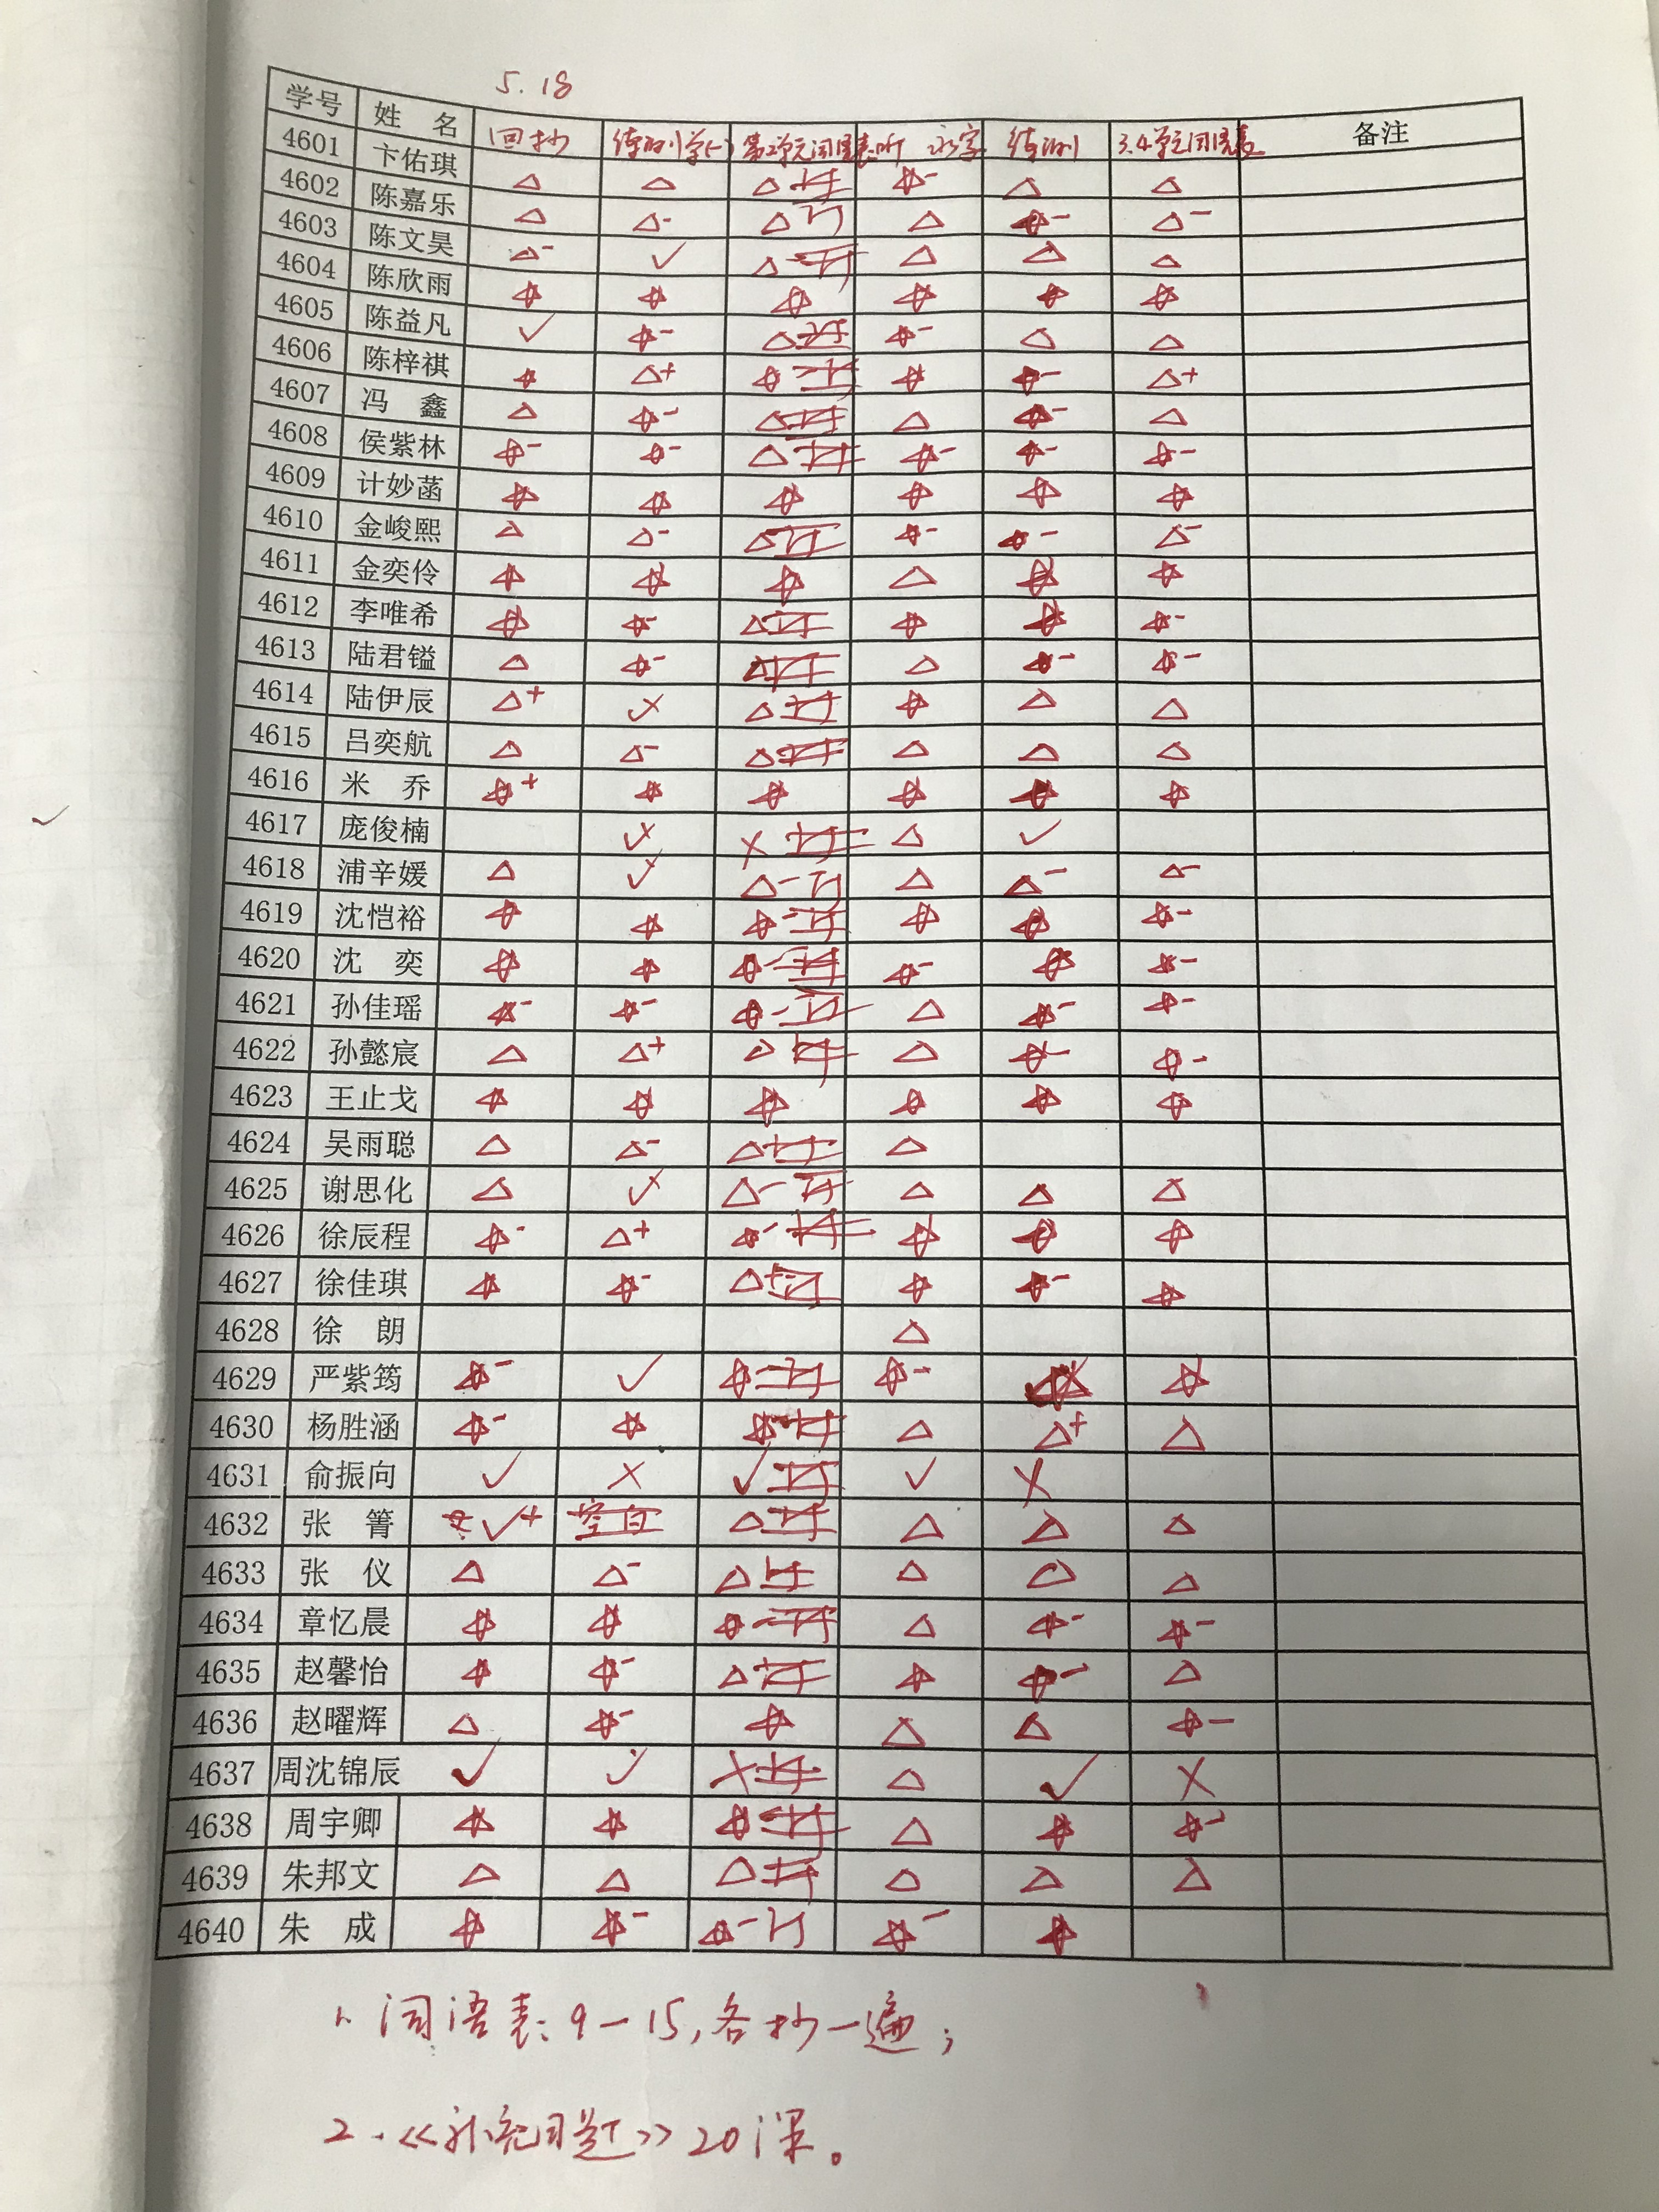 5.18
学号 姓 名 回抄 练测 第2单元词语表 听 练测 3.4单元词语表 备注
4601 卞佑琪 △ △ △订 ☆- △ △
4602 陈嘉乐 △ △- △订 △ ☆- △-
4603 陈文昊 △- ✓ △-订 △ △ △
4604 陈欣雨 ☆ ☆ ☆ ☆ ☆ ☆
4605 陈益凡 ✓ ☆- △订 ☆- △ △
4606 陈梓祺 ☆ △+ ☆-订 ☆ ☆- △+
4607 冯 鑫 △ ☆- △订 △ ☆- △
4608 侯紫林 ☆- ☆- △订 ☆- ☆- ☆-
4609 计妙菡 ☆ ☆ ☆ ☆ ☆ ☆
4610 金峻熙 △ △- △订 ☆- ☆- △-
4611 金奕伶 ☆ ☆ ☆ △ ☆ ☆
4612 李唯希 ☆ ☆- △订 ☆ ☆ ☆-
4613 陆君镒 △ ☆- △订 △ ☆- ☆-
4614 陆伊辰 △+ ✓ △订 ☆ △ △
4615 吕奕航 △ △- △订 △ △ △
4616 米 乔 ☆+ ☆ ☆ ☆ ☆ ☆
4617 庞俊楠 ✓ ×订 △ ✓
4618 浦辛媛 △ ✓ △-订 △ △- △-
4619 沈恺裕 ☆ ☆ ☆-订 ☆ ☆ ☆-
4620 沈 奕 ☆ ☆ ☆-订 ☆- ☆ ☆-
4621 孙佳瑶 ☆- ☆- ☆-订 △ ☆- ☆-
4622 孙懿宸 △ △+ △订 △ ☆- ☆-
4623 王止戈 ☆ ☆ ☆ ☆ ☆ ☆
4624 吴雨聪 △ △- △订 △
4625 谢思化 △ ✓ △-订 △ △ △
4626 徐辰程 ☆- △+ ☆-订 ☆ ☆ ☆
4627 徐佳琪 ☆ ☆- △+订 ☆ ☆- ☆
4628 徐 朗 △
4629 严紫筠 ☆- ✓ ☆订 ☆- ☆ ☆
4630 杨胜涵 ☆- ☆ ☆订 △ △+ △
4631 俞振向 ✓ × ✓订 ✓ ×
4632 张 箐 ✓+ 空白 △订 △ △ △
4633 张 仪 △ △- △订 △ △ △
4634 章忆晨 ☆ ☆ ☆-订 △ ☆- ☆-
4635 赵馨怡 ☆ ☆- △订 ☆ ☆- △
4636 赵曜辉 △ ☆- ☆ △ △ ☆-
4637 周沈锦辰 ✓ ✓ ×订 △ ✓ ×
4638 周宇卿 ☆ ☆ ☆订 △ ☆ ☆-
4639 朱邦文 △ △ △订 △ △ △
4640 朱 成 ☆ ☆- ☆-订 ☆- ☆
1、词语表：9—15，各抄一遍；
2、《补充习题》20课。